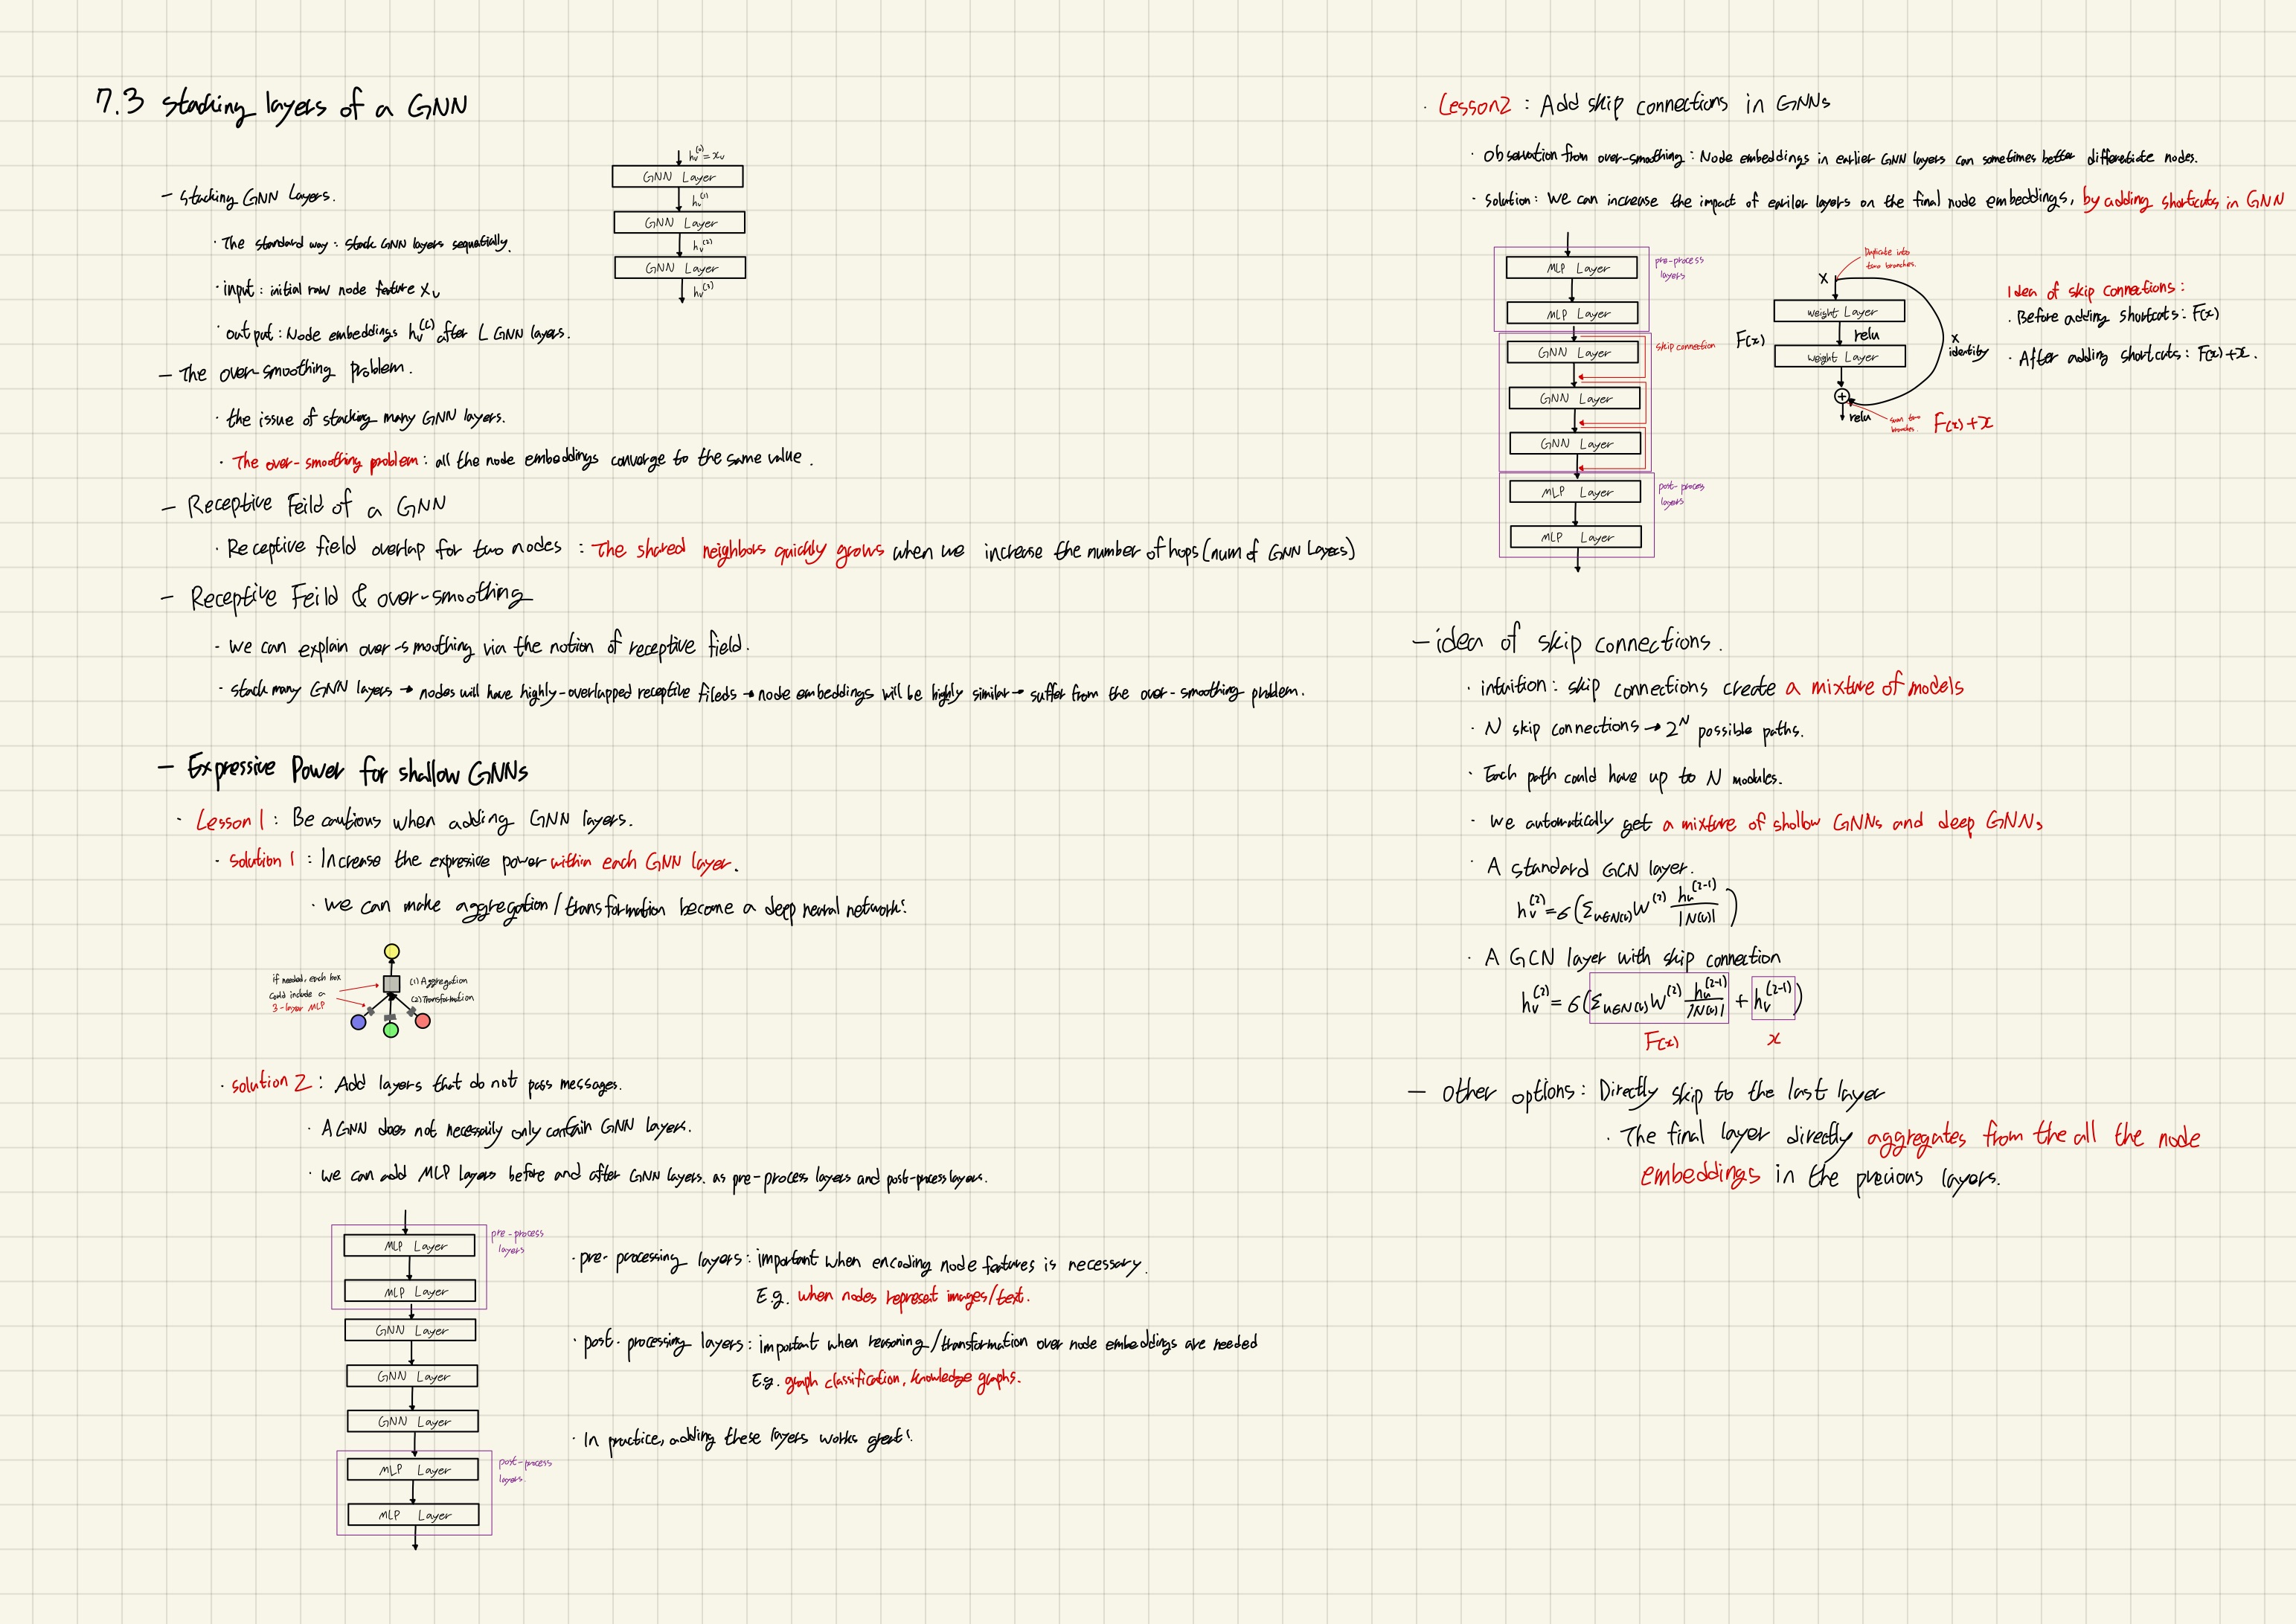 7.3 stacking layers of a GNN
hv^(0) = xv
GNN Layer
hv^(1)
GNN Layer
hv^(2)
GNN Layer
hv^(3)
- stacking GNN Layers.
· The standard way : stack GNN layers sequentially.
· input : initial raw node feature xv
· output : Node embeddings hv^(L) after L GNN layers.
- The over-smoothing problem.
· the issue of stacking many GNN layers.
· The over-smoothing problem : all the node embeddings converge to the same value.
- Receptive Feild of a GNN
· Receptive field overlap for two nodes : The shared neighbors quickly grows when we increase the number of hops (num of GNN Layers)
- Receptive Feild & over-smoothing
· we can explain over-smoothing via the notion of receptive field.
· stack many GNN layers → nodes will have highly-overlapped receptive fileds → node embeddings will be highly similar → suffer from the over-smoothing problem.
- Expressive Power for shallow GNNs
· Lesson 1 : Be cautious when adding GNN layers.
· solution 1 : Increase the expresive power within each GNN layer.
· we can make aggregation/transformation become a deep neural network!
if needed, each box
could include a
3-layer MLP
(1) Aggregation
(2) Transformation
· solution 2 : Add layers that do not pass messages.
· A GNN does not necessarily only contain GNN layers.
· we can add MLP layers before and after GNN layers. as pre-process layers and post-process layers.
MLP Layer
MLP Layer
pre-process
layers
GNN Layer
GNN Layer
GNN Layer
MLP Layer
MLP Layer
post-process
layers
· pre-processing layers : important when encoding node features is necessary.
E.g. when nodes represent images/text.
· post-processing layers : important when reasoning/transformation over node embeddings are needed
E.g. graph classification, knowledge graphs.
· In practice, adding these layers works great!
· Lesson2 : Add skip connections in GNNs
· Observation from over-smoothing : Node embeddings in earlier GNN layers can sometimes better differentiate nodes.
· solution : We can increase the impact of eariler layers on the final node embeddings, by adding shortcuts in GNN
MLP Layer
MLP Layer
pre-process
layers
GNN Layer
GNN Layer
GNN Layer
skip connection
MLP Layer
MLP Layer
post-process
layers
Duplicate into
two branches.
X
weight Layer
F(x)
relu
weight Layer
X
identity
+
relu
sum two
branches.
F(x)+x
Idea of skip connections :
· Before adding shortcuts : F(x)
· After adding shortcuts : F(x)+x.
- idea of skip connections.
· intuition : skip connections create a mixture of models
· N skip connections → 2^N possible paths.
· Each path could have up to N modules.
· we automatically get a mixture of shallow GNNs and deep GNNs
· A standard GCN layer.
hv^(2) = σ(Σu∈N(v) W^(2) hu^(2-1) / |N(v)|)
· A GCN layer with skip connection
hv^(2) = σ(Σu∈N(v) W^(2) hu^(2-1) / |N(v)| + hv^(2-1))
F(x) x
- other options : Directly skip to the last layer
· The final layer directly aggregates from the all the node
embeddings in the precious layers.